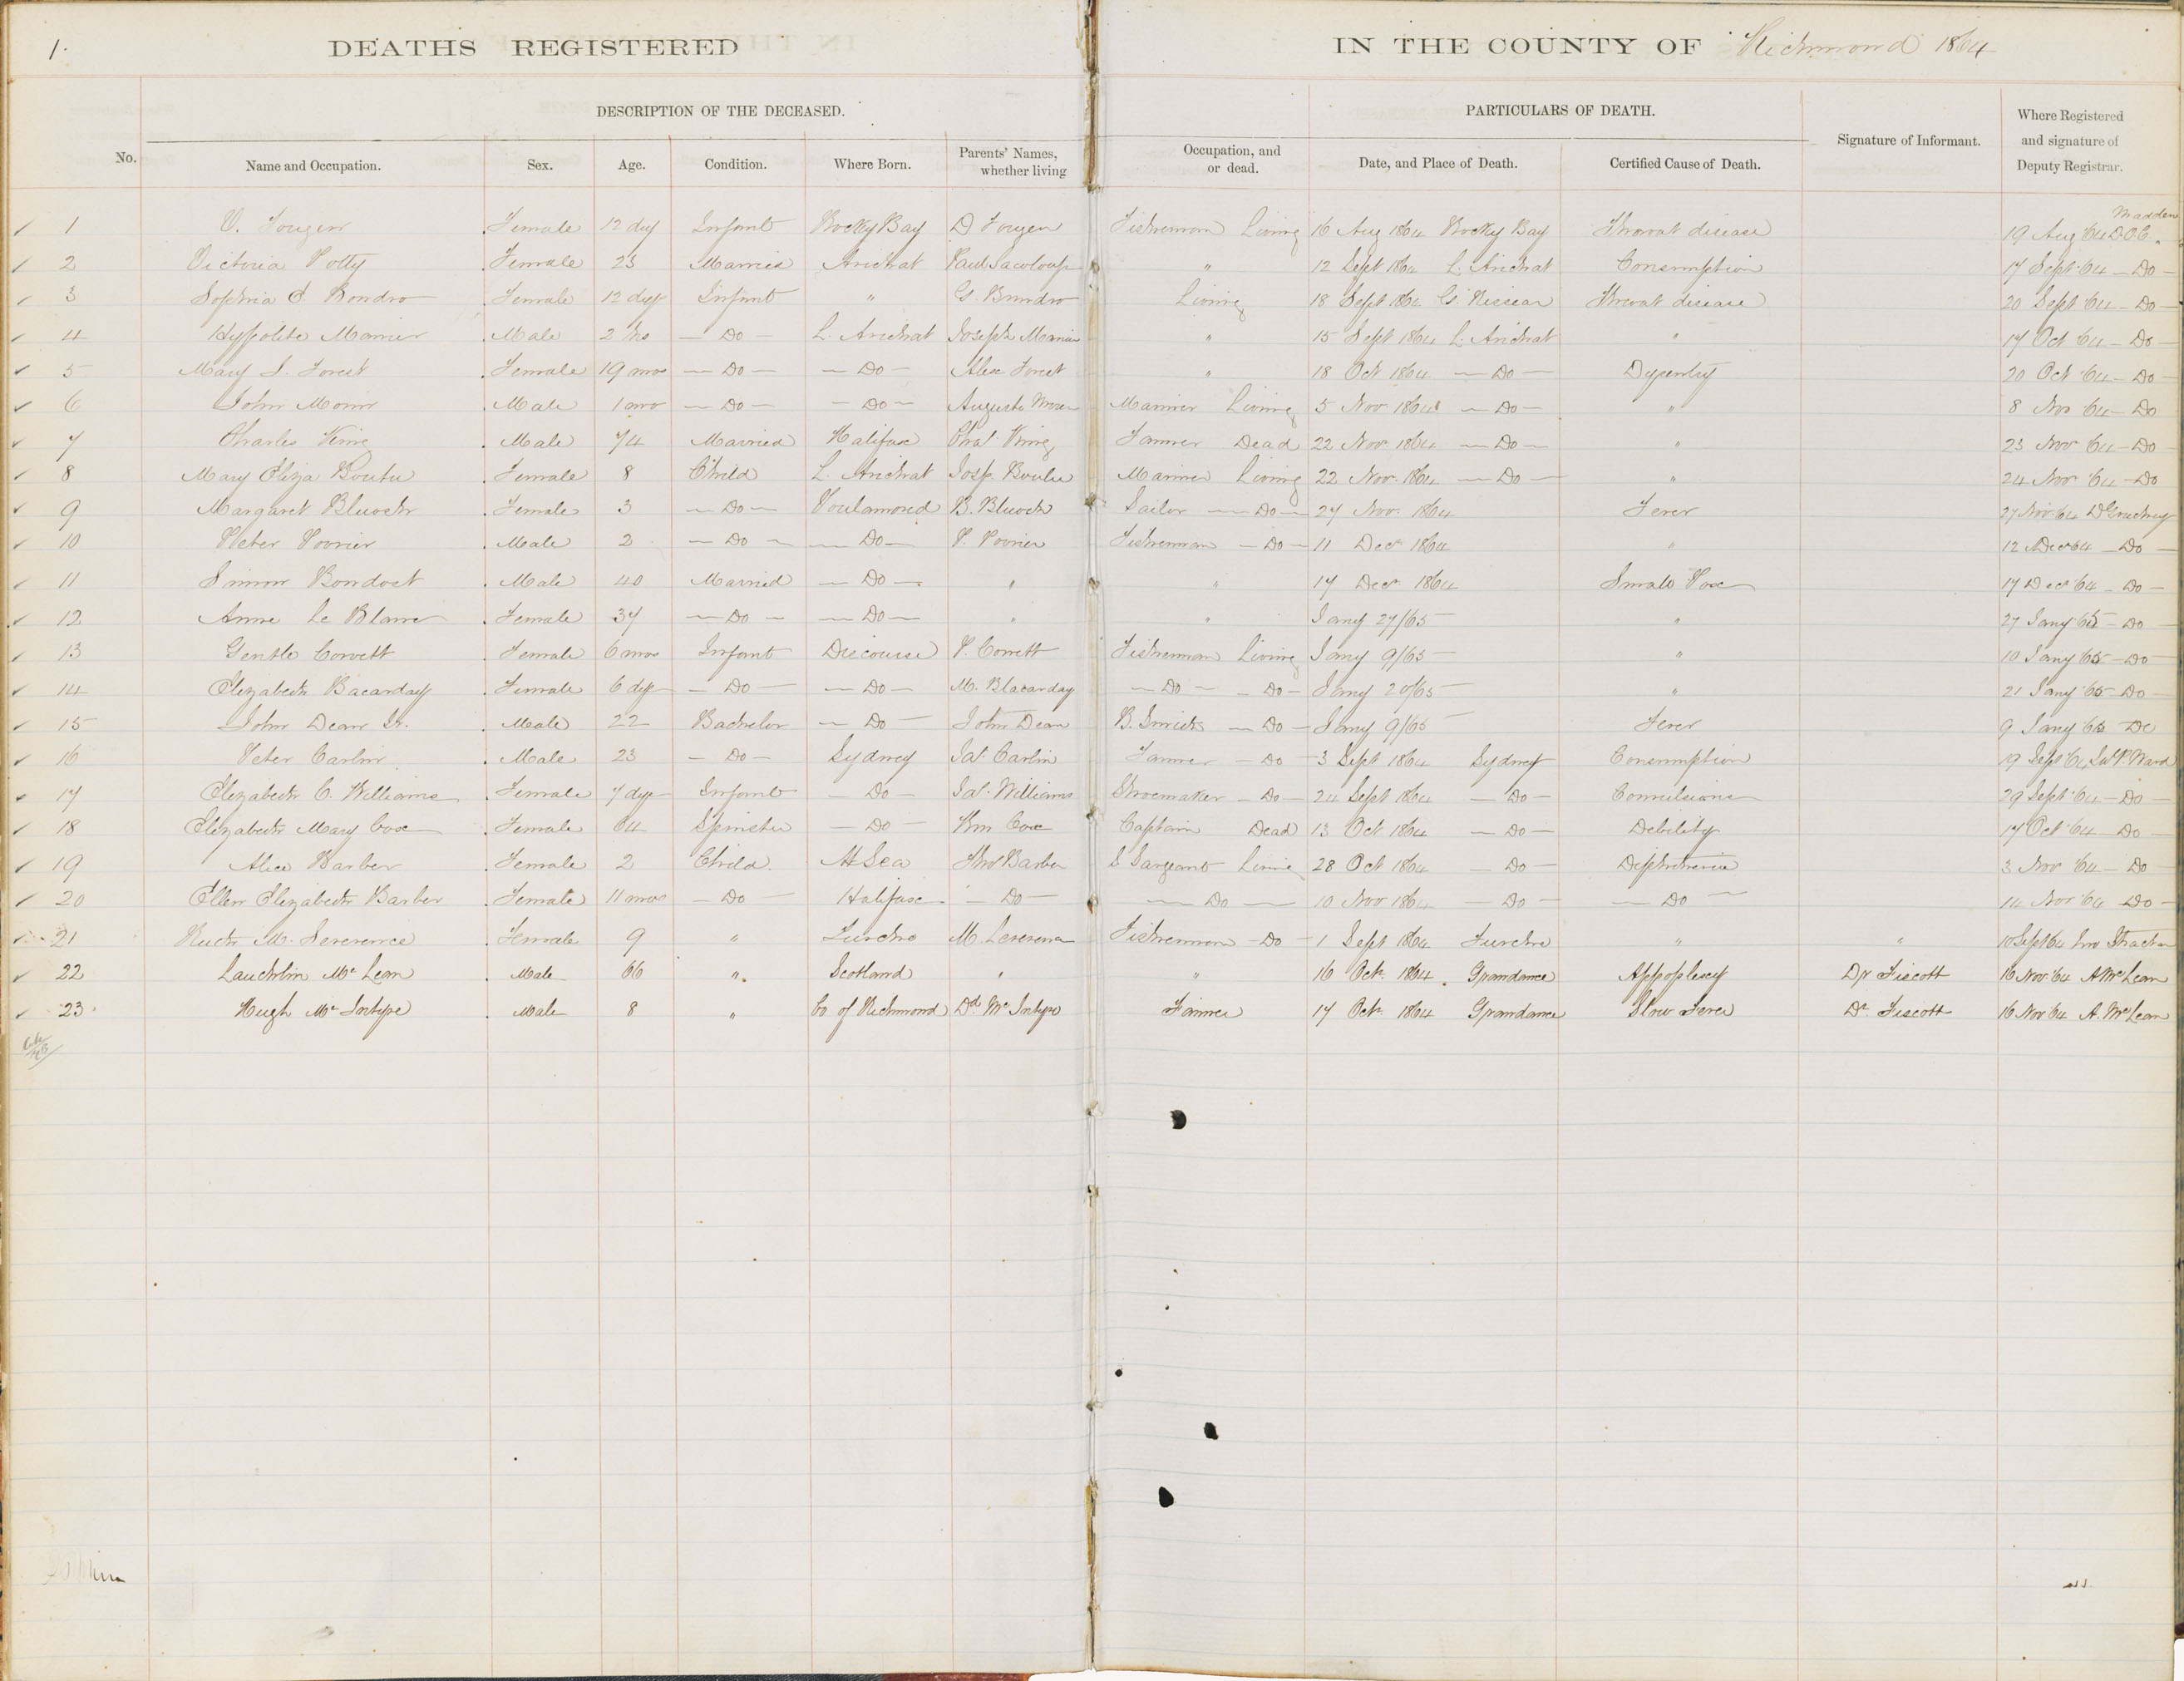 1.
DEATHS REGISTERED IN THE COUNTY OF Richmond 1864
DESCRIPTION OF THE DECEASED. PARTICULARS OF DEATH.
No. Name and Occupation. Sex. Age. Condition. Where Born. Parents' Names, whether living Occupation, and or dead. Date, and Place of Death. Certified Cause of Death. Signature of Informant. Where Registered and signature of Deputy Registrar.
1 V. Female 12 dys Infant Rocky Bay D Fisherman Living 16 Aug 1864 Rocky Bay Throat disease 19 Aug '64 Madden
2 Victoria Potty Female 23 Married Arichat Paul " 12 Sept 1864 L. Arichat Consumption 17 Sept '64 — Do —
3 Sophia Bondro Female 12 dys Infant " G. Bondro Living 18 Sept 1864 G. Throat disease 20 Sept '64 — Do —
4 Hyppolite Male — Do — L. Arichat Joseph " 15 Sept 1864 L. Arichat " 17 Oct '64 — Do
5 Mary Forest Female 19 mos — Do — — Do — Alex Forest " 18 Oct 1864 — Do — Dysentry 20 Oct '64 — Do —
6 John Male 1 mo — Do — — Do — Auguste Mariner Living 5 Nov 1864 — Do — " 8 Nov '64 — Do
7 Charles King Male 74 Married Halifax Chas. King Farmer Dead 22 Nov. 1864 — Do — " 23 Nov '64 — Do
8 Mary Eliza Female 8 Child L. Arichat Josp. Mariner Living 22 Nov. 1864 — Do — " 24 Nov '64 — Do
9 Margaret Female 3 — Do — Poulamond B. Sailor — Do — 27 Nov. 1864 Fever 27 Nov '64
10 Peter Poirier Male 2 — Do — — Do — P. Poirier Fisherman — Do — 11 Decr 1864 " 12 Decr 64 — Do —
11 Simon Male 40 Married — Do — " " 17 Decr 1864 Small Pox 17 Decr '64 — Do —
12 Anne Le Blanc Female 37 — Do — — Do — " " Jany 27/65 — " 27 Jany 65 — Do
13 Gentle Corvett Female 6 mos Infant Discousse P. Corvett Fisherman Living Jany 9/65 — " 10 Jany '65 — Do —
14 Elizabeth Bacarday Female 6 dys — Do — — Do — M. Blacarday — Do — — Do — Jany 20/65 — " 21 Jany '65 — Do —
15 John Dean Jr. Male 22 Bachelor — Do — John Dean B. Smith — Do — Jany 9/65 — Fever 9 Jany '65 — Do
16 Peter Carlin Male 23 — Do — Sydney Jas. Carlin Farmer — Do — 3 Sept 1864 Sydney Consumption 19 Sept '64 Ward
17 Elizabeth C. Williams Female 7 dys Infant — Do — Jas. Williams Shoemaker — Do — 24 Sept 1864 — Do — Convulsions 29 Sept '64 — Do —
18 Elizabeth Mary Cox Female 64 Spinster — Do — Wm Cox Captain Dead 13 Oct 1864 — Do — Debility 17 Oct '64 — Do —
19 Alice Barber Female 2 Child At Sea Thos Barber S Sargeant Living 28 Oct 1864 — Do — Diphtheria 3 Nov '64 — Do —
20 Ellen Elizabeth Barber Female 11 mos — Do — Halifax — Do — — Do — 10 Nov 1864 — Do — — Do — 14 Nov '64 — Do —
21 Ruth M. Severence Female 9 " Furcho M. Severence Fisherman — Do — 1 Sept 1864 Furcho " " 10 Sept 64 Jno Strachan
22 Lauchlin Mc Lean Male 66 " Scotland " " 16 Oct. 1864. Grandance Appoplexy Dr Fiscott 16 Nov '64 A Mc Lean
23 Hugh Mc Intyre Male 8 " Co of Richmond Dd. Mc Intyre Farmer 17 Oct. 1864 Grandance Slow Fever Dr Fiscott 16 Nov 64 A. Mc Lean